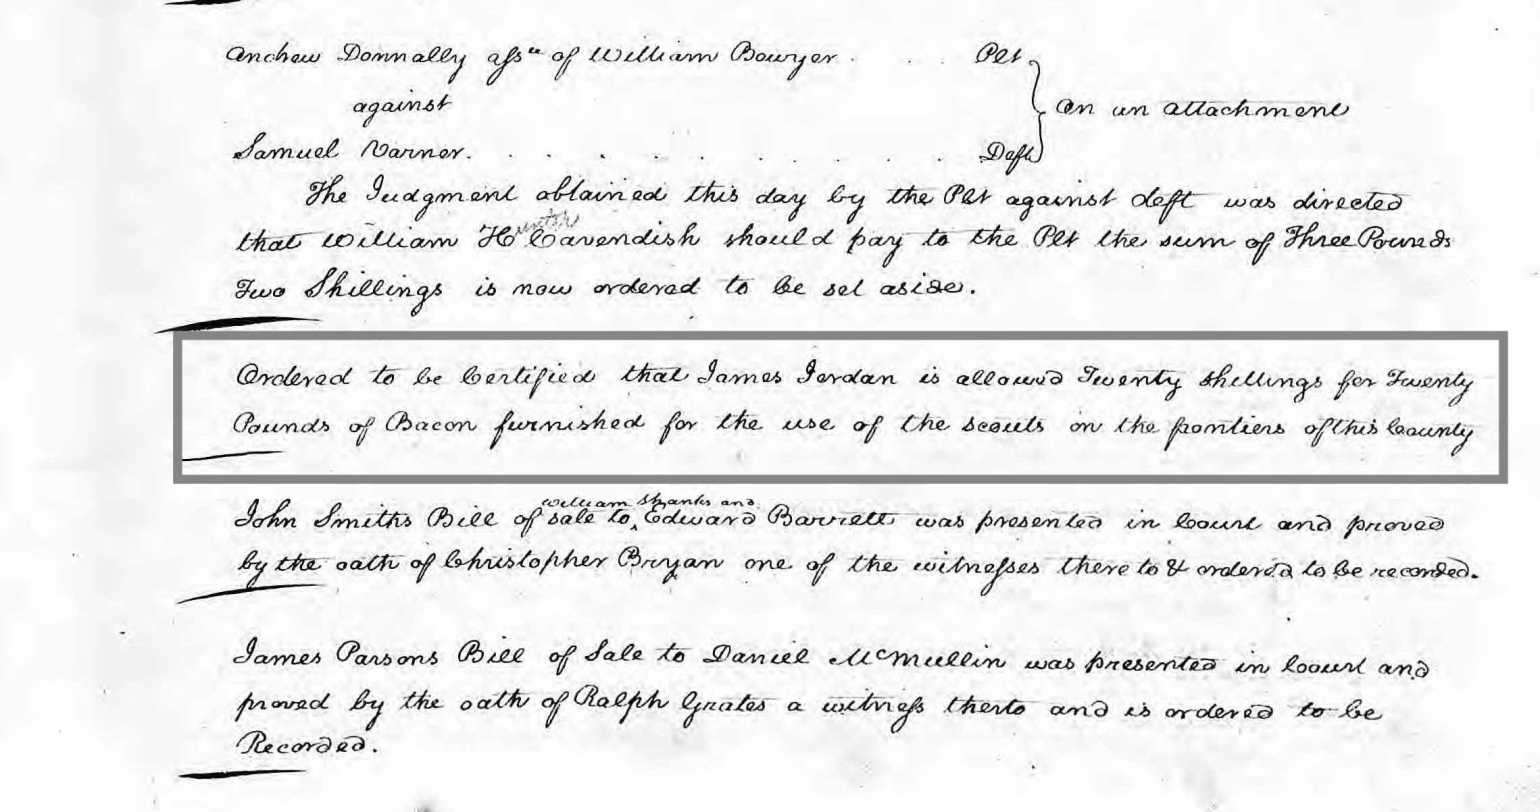 Andrew Donnally assee of William Bowyer . . . Plt
against
On an attachment
Samuel Varner. . . . . . . . . . Deft
The Judgment obtained this day by the Plt against deft was directed
that William Hunter Cavendish should pay to the Plt the sum of Three Pounds
Two Shillings is now ordered to be set aside.
Ordered to be Certified that James Jordan is allowed Twenty Shillings for Twenty
Pounds of Bacon furnished for the use of the scouts on the frontiers of this County
William Shanks and
John Smiths Bill of sale to ‸ Edward Barrett was presented in Court and proved
by the oath of Christopher Bryan one of the witnesses there to & ordered to be recorded.
James Parsons Bill of Sale to Daniel McMullin was presented in Court and
proved by the oath of Ralph Gates a witness therto and is ordered to be
Recorded.